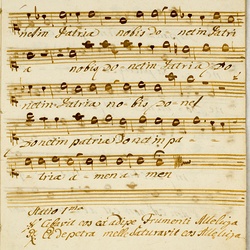 netin Patria nobis do netin Patri
a nobis donetin Patria Do
netin Patria no bis do net
Donetin patria Donet in pa
tria a men a men
Statio 1ma
Cibavit eos ex adipe Frumenti Alleluja
Et de petra melle Saturavit eos Alleluja